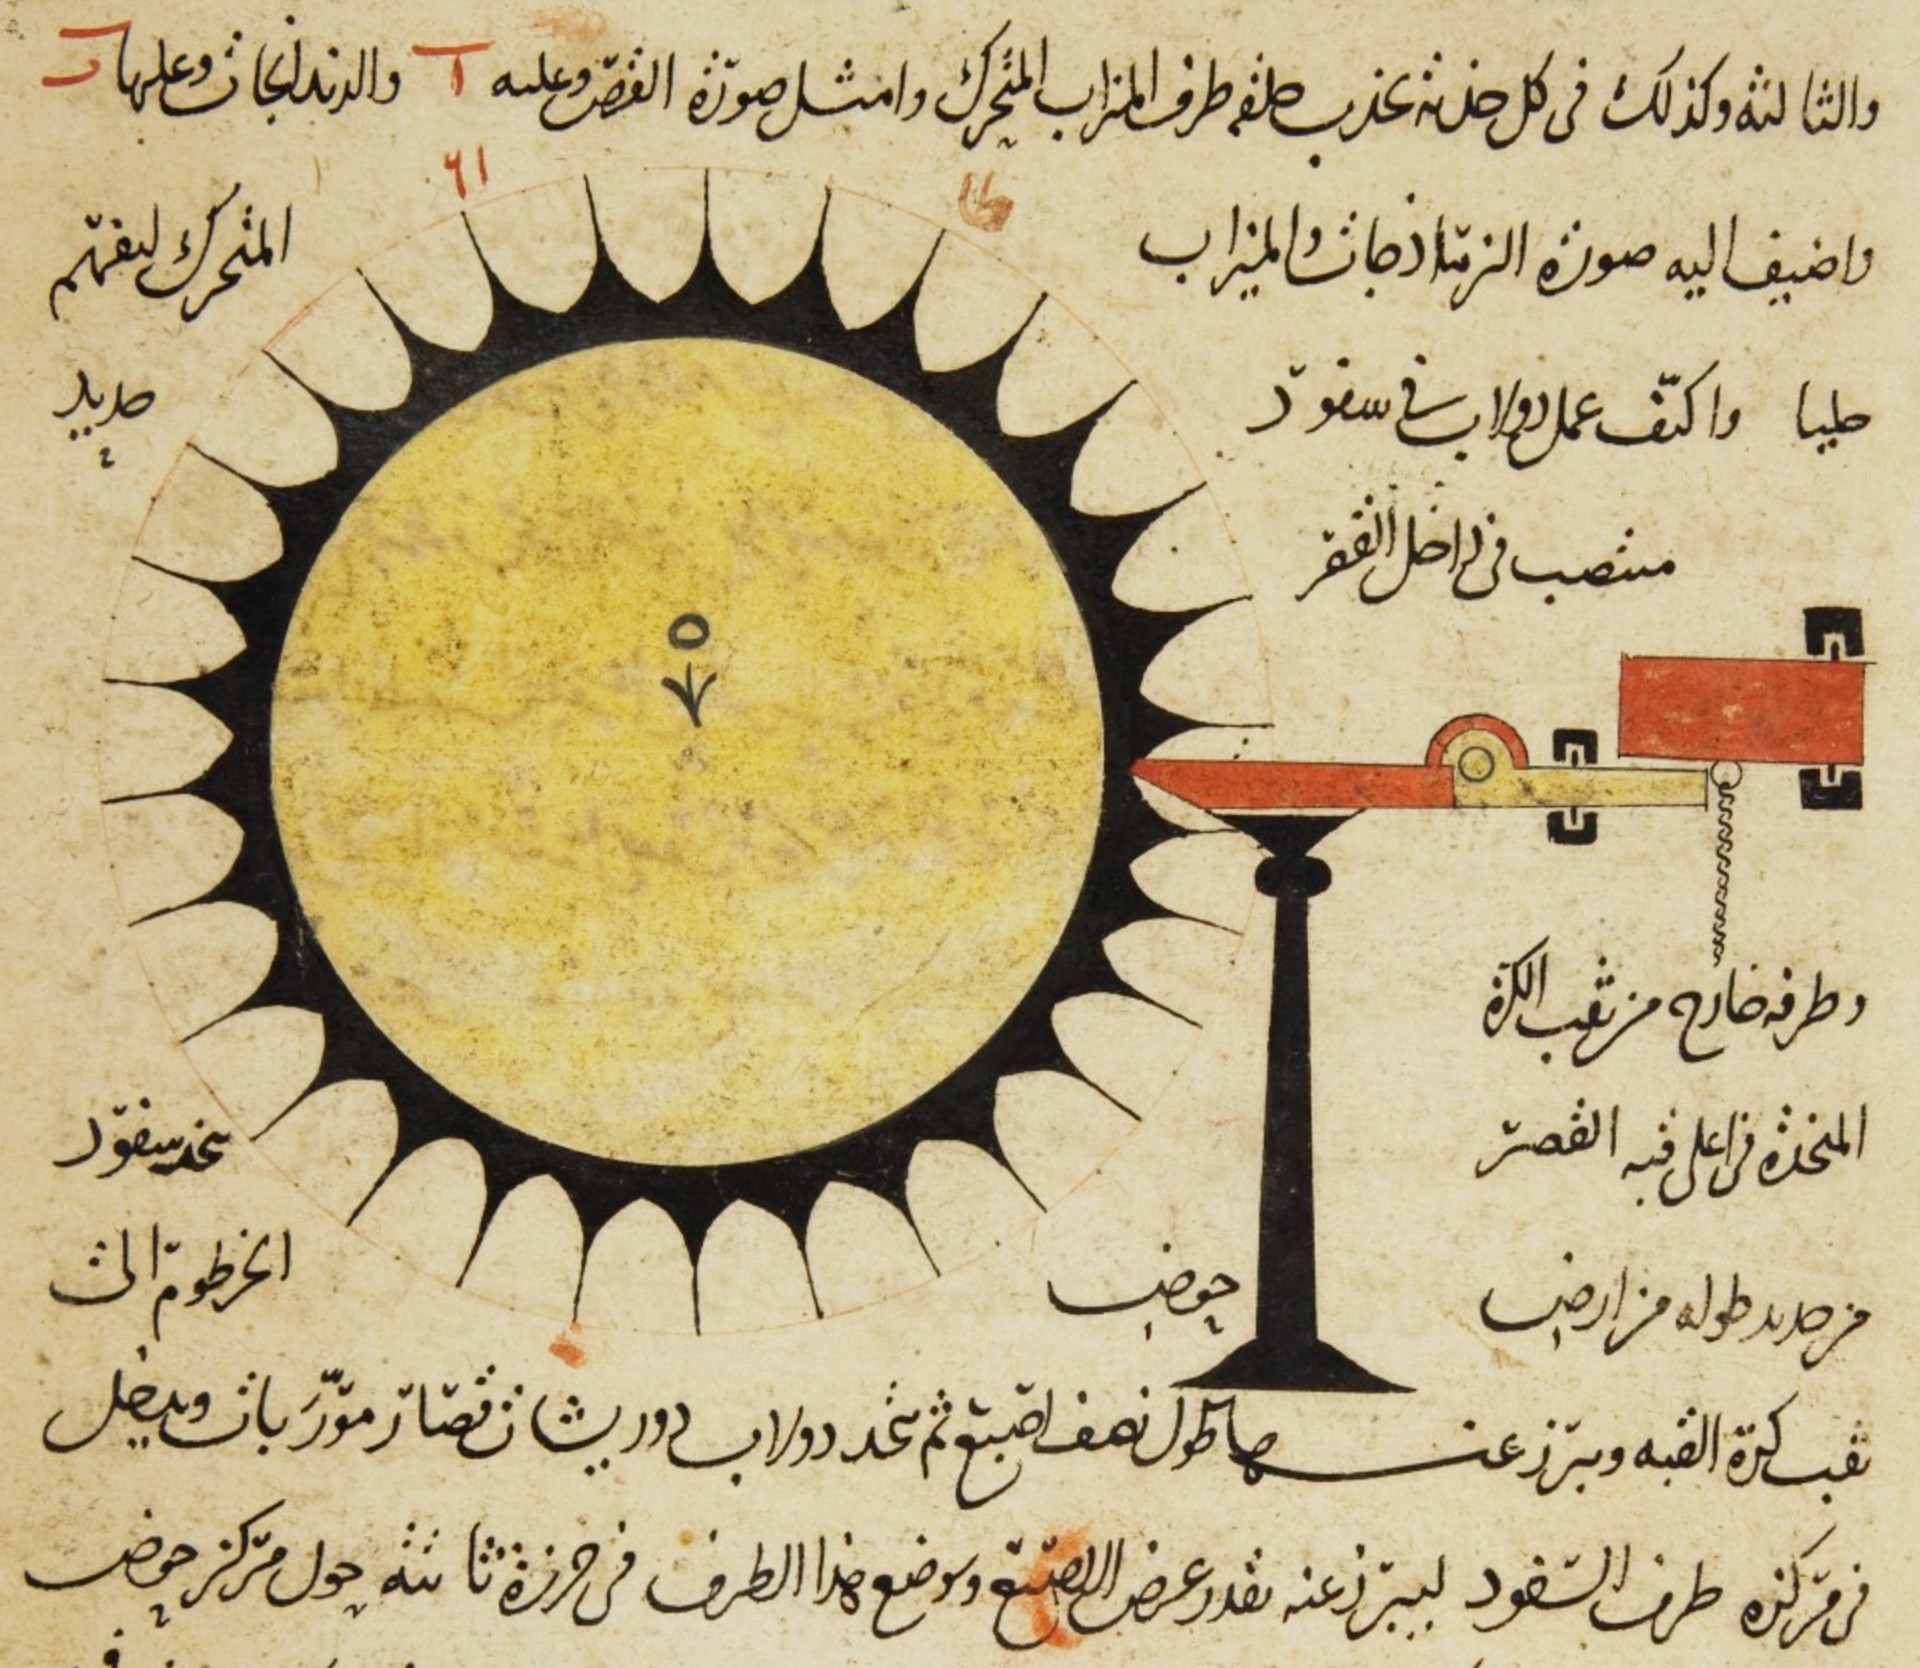 والثالثة وكذلك في كل جذبة يجذب حلقة طرف الميزاب المتحرك وامثل صورة القصر وعليه ا والدندانجات وعليها ب
واضيف اليه صورة الزمااذجات والميزاب المتحرك ليفهم
جليا واكتف عمل دولاب في سفود حديد
منتصب في داخل القصر
وطرفه خارج من ثقب الكرة
المتخذة في اعلى قبة القصر يتخذ سفود
من حديد طوله من ارض حوض الخرطوم الى
ثقب كرة القبة ويبرز عنها طول نصف اصبع ثم يتخذ دولاب دو ريشات قصار موربات ويدخل
في مركزه طرف السفود ليبرز عنه بقدر عرض الاصبع ويوضع هذا الطرف في خرزة ثابتة حول مركز حوض